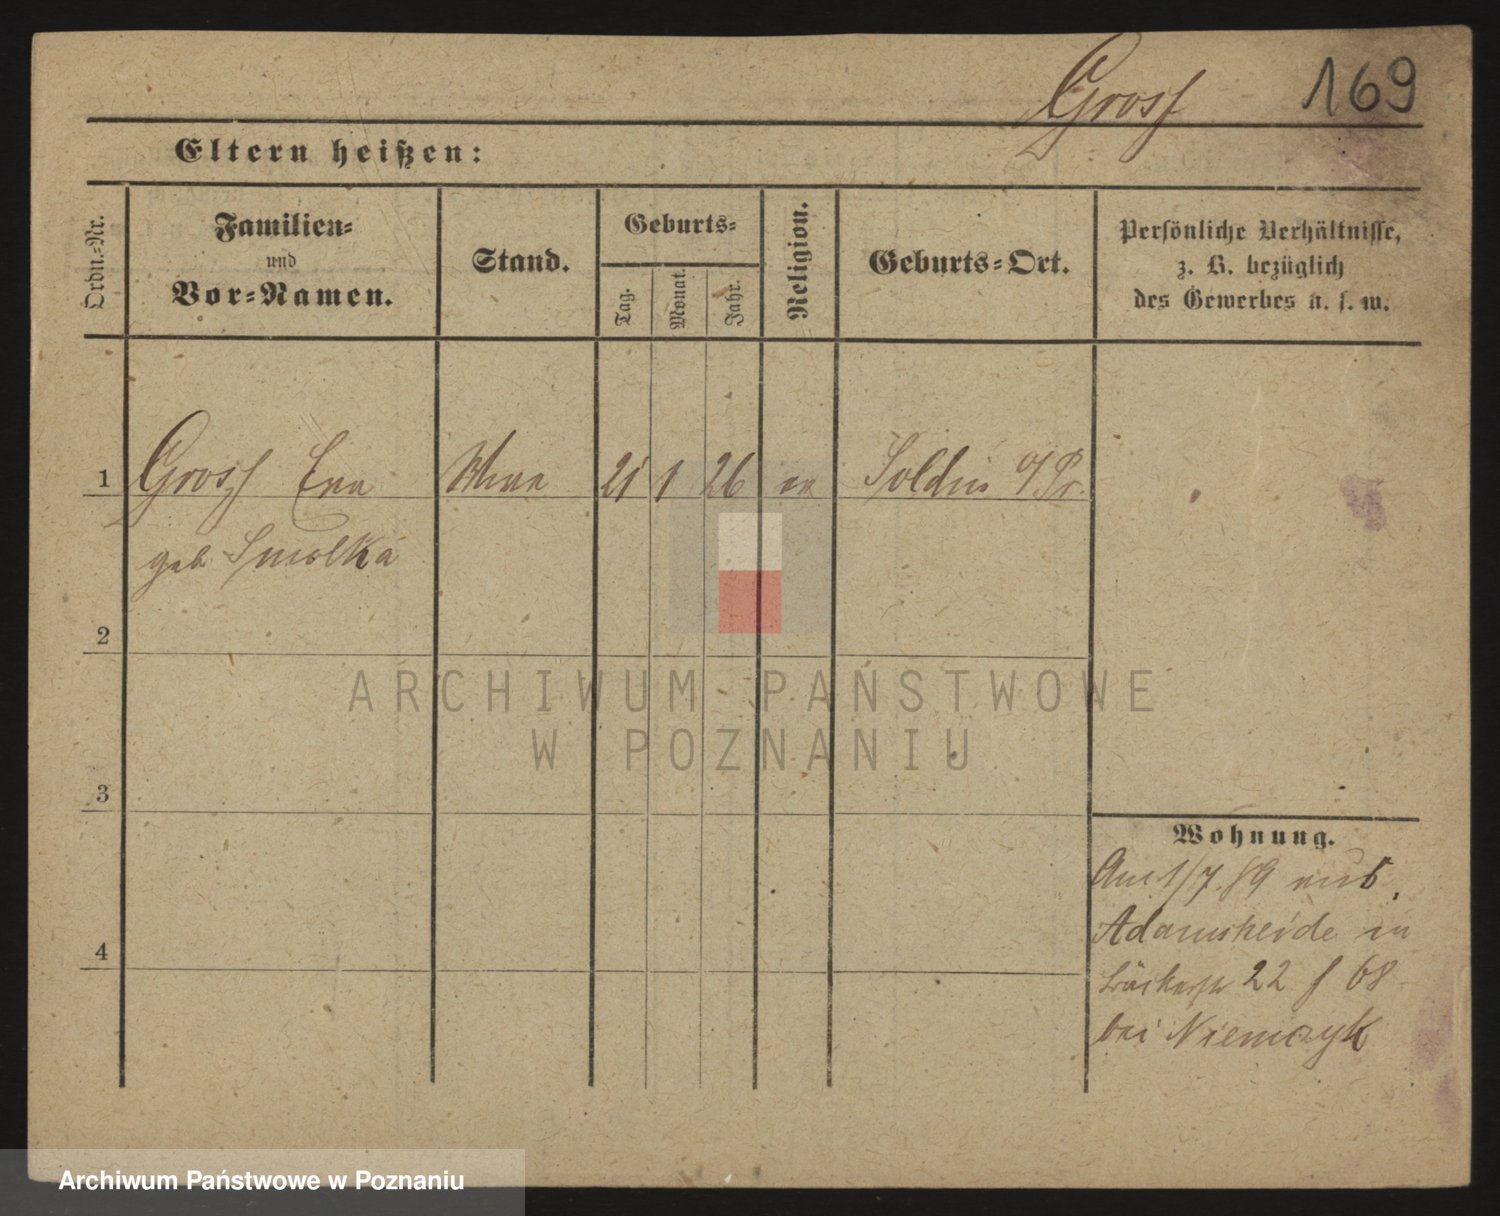 Gross 169
Eltern heißen:
Ordn.-Nr.
Familien-
und
Vor-Namen.
Stand.
Geburts-
Tag.
Monat.
Jahr.
Religion.
Geburts-Ort.
Persönliche Verhältnisse,
z. B. bezüglich
des Gewerbes u. s. w.
1 Gross Eva Wwe 21 1 26 ev Soldin O/Pr.
geb Smolka
2
3
4
Wohnung.
Am 1/7 89 aus
Adamsheide in
22 68
bei Niemczyk
ARCHIWUM PAŃSTWOWE
W POZNANIU
Archiwum Państwowe w Poznaniu